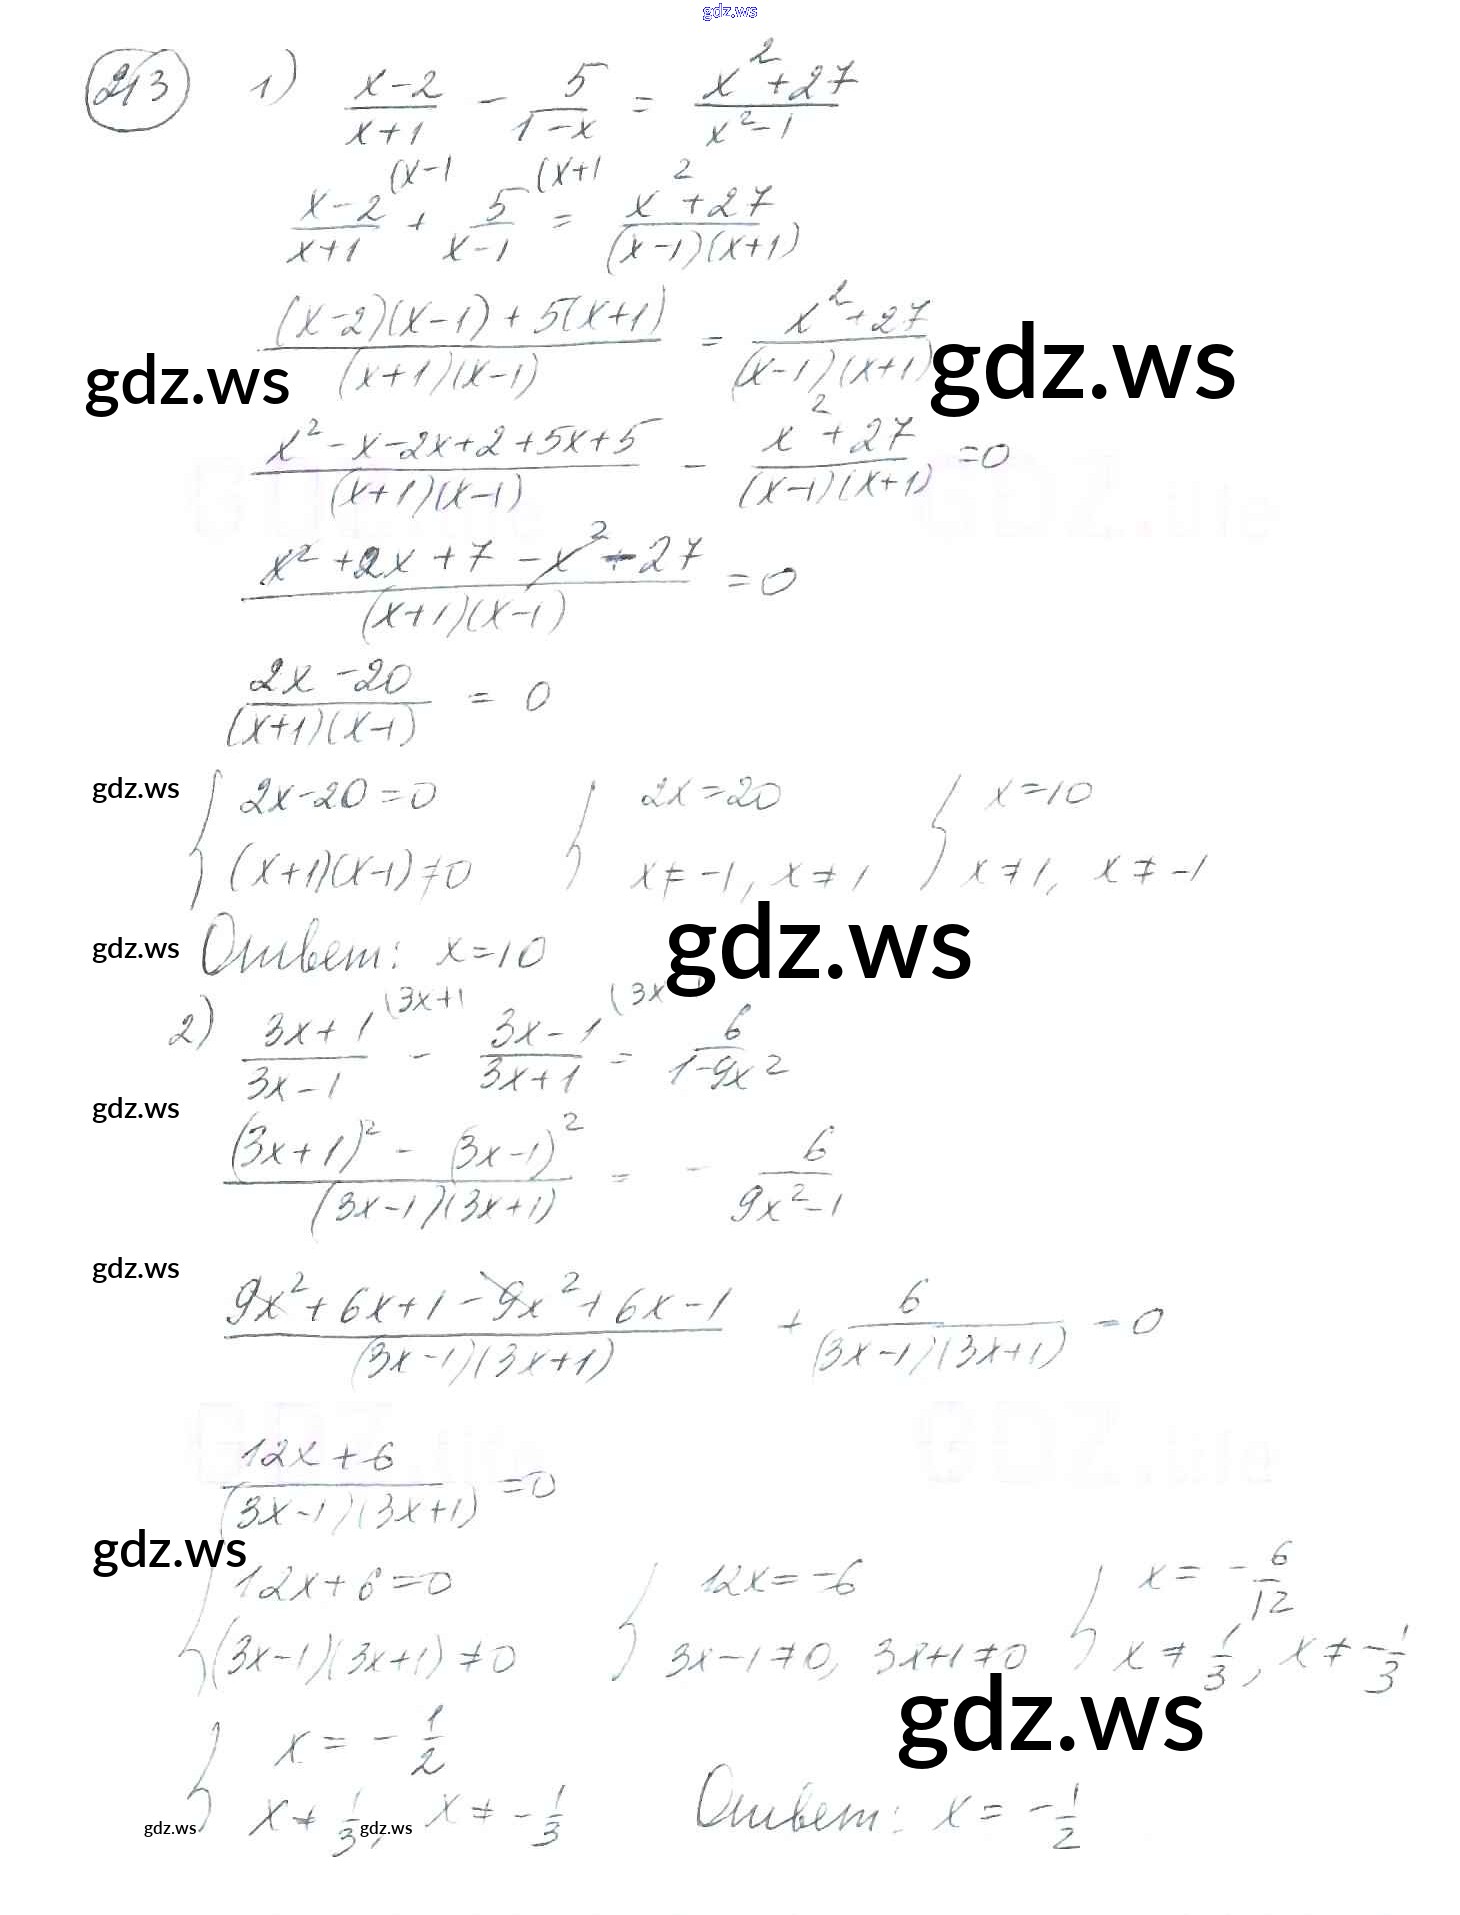 gdz.ws
213 1) (x-2)/(x+1) - 5/(1-x) = (x²+27)/(x²-1)
(x-2)/(x+1) (x-1 + 5/(x-1) (x+1 = (x²+27)/((x-1)(x+1))
((x-2)(x-1)+5(x+1))/((x+1)(x-1)) = (x²+27)/((x-1)(x+1))
gdz.ws gdz.ws
(x²-x-2x+2+5x+5)/((x+1)(x-1)) - (x²+27)/((x-1)(x+1)) =0
(x²+2x+7-x²-27)/((x+1)(x-1)) =0
(2x-20)/((x+1)(x-1)) = 0
gdz.ws { 2x-20=0 { 2x=20 { x=10
(x+1)(x-1)≠0 x≠-1, x≠1 x≠1, x≠-1
gdz.ws Ответ: x=10 gdz.ws
2) (3x+1)/(3x-1) (3x+1 - (3x-1)/(3x+1) (3x = 6/(1-9x²)
gdz.ws
((3x+1)² - (3x-1)²)/((3x-1)(3x+1)) = - 6/(9x²-1)
gdz.ws
(9x²+6x+1-9x²+6x-1)/((3x-1)(3x+1)) + 6/((3x-1)(3x+1)) =0
(12x+6)/((3x-1)(3x+1)) =0
gdz.ws
{ 12x+6=0 { 12x=-6 { x= -6/12
(3x-1)(3x+1)≠0 3x-1≠0, 3x+1≠0 x≠1/3, x≠-1/3
gdz.ws
{ x = -1/2
x≠1/3, x≠-1/3 Ответ: x = -1/2
gdz.ws gdz.ws